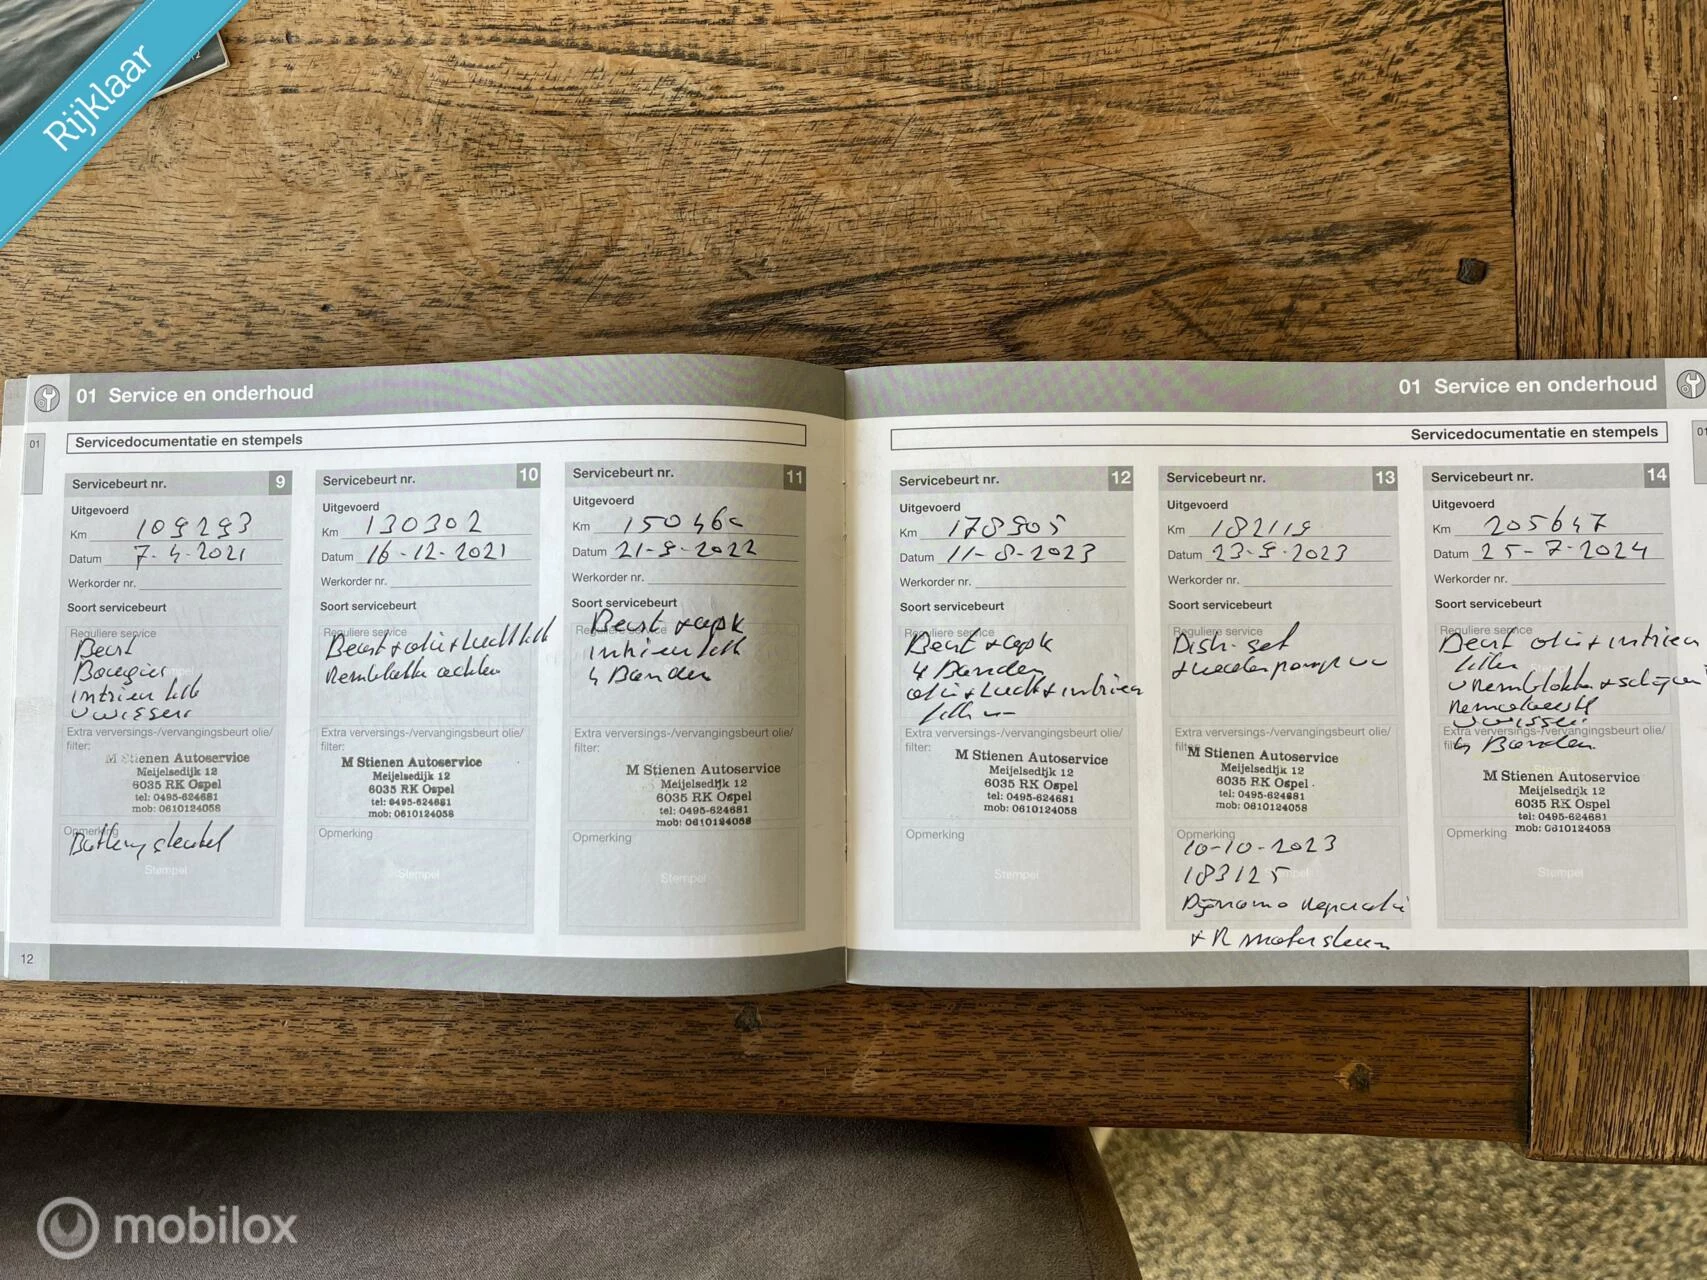 Rijklaar
01 Service en onderhoud
01
Servicedocumentatie en stempels
Servicebeurt nr. 9
Uitgevoerd
Km 109293
Datum 7-4-2021
Werkorder nr.
Soort servicebeurt
Reguliere service
Beurt
Bougies
Extra verversings-/vervangingsbeurt olie/
filter:
M Stienen Autoservice
Meijelsedijk 12
6035 RK Ospel
tel: 0495-624681
mob: 0610124058
Opmerking
Batterij sleutel
Stempel
Servicebeurt nr. 10
Uitgevoerd
Km 130302
Datum 16-12-2021
Werkorder nr.
Soort servicebeurt
Reguliere service
Beurt + olie + lucht
Extra verversings-/vervangingsbeurt olie/
filter:
M Stienen Autoservice
Meijelsedijk 12
6035 RK Ospel
tel: 0495-624681
mob: 0610124058
Opmerking
Stempel
Servicebeurt nr. 11
Uitgevoerd
Km
Datum 21-9-2022
Werkorder nr.
Soort servicebeurt
Reguliere service
Beurt + apk
4 Banden
Extra verversings-/vervangingsbeurt olie/
filter:
M Stienen Autoservice
Meijelsedijk 12
6035 RK Ospel
tel: 0495-624681
mob: 0610124058
Opmerking
Stempel
12
01 Service en onderhoud
01
Servicedocumentatie en stempels
Servicebeurt nr. 12
Uitgevoerd
Km 178905
Datum 11-8-2023
Werkorder nr.
Soort servicebeurt
Reguliere service
Beurt + apk
4 Banden
olie + lucht + intrieur
Extra verversings-/vervangingsbeurt olie/
filter:
M Stienen Autoservice
Meijelsedijk 12
6035 RK Ospel
tel: 0495-624681
mob: 0610124058
Opmerking
Stempel
Servicebeurt nr. 13
Uitgevoerd
Km 182119
Datum 23-9-2023
Werkorder nr.
Soort servicebeurt
Reguliere service
Distr. set
+ waterpomp
Extra verversings-/vervangingsbeurt olie/
filter:
M Stienen Autoservice
Meijelsedijk 12
6035 RK Ospel
tel: 0495-624681
mob: 0610124058
Opmerking
10-10-2023
183125
Dynamo reparatie
+ R motorsteun
Servicebeurt nr. 14
Uitgevoerd
Km 205647
Datum 25-7-2024
Werkorder nr.
Soort servicebeurt
Reguliere service
Beurt olie + intrieur
filter
V remblokken + schijven
V wissers
Extra verversings-/vervangingsbeurt olie/
filter:
4 Banden
M Stienen Autoservice
Meijelsedijk 12
6035 RK Ospel
tel: 0495-624681
mob: 0610124058
Opmerking
Stempel
mobilox